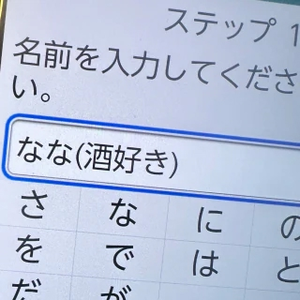 ステップ 1
名前を入力してくださ
い。
なな(酒好き)
さ な に の
を で は と
だ が